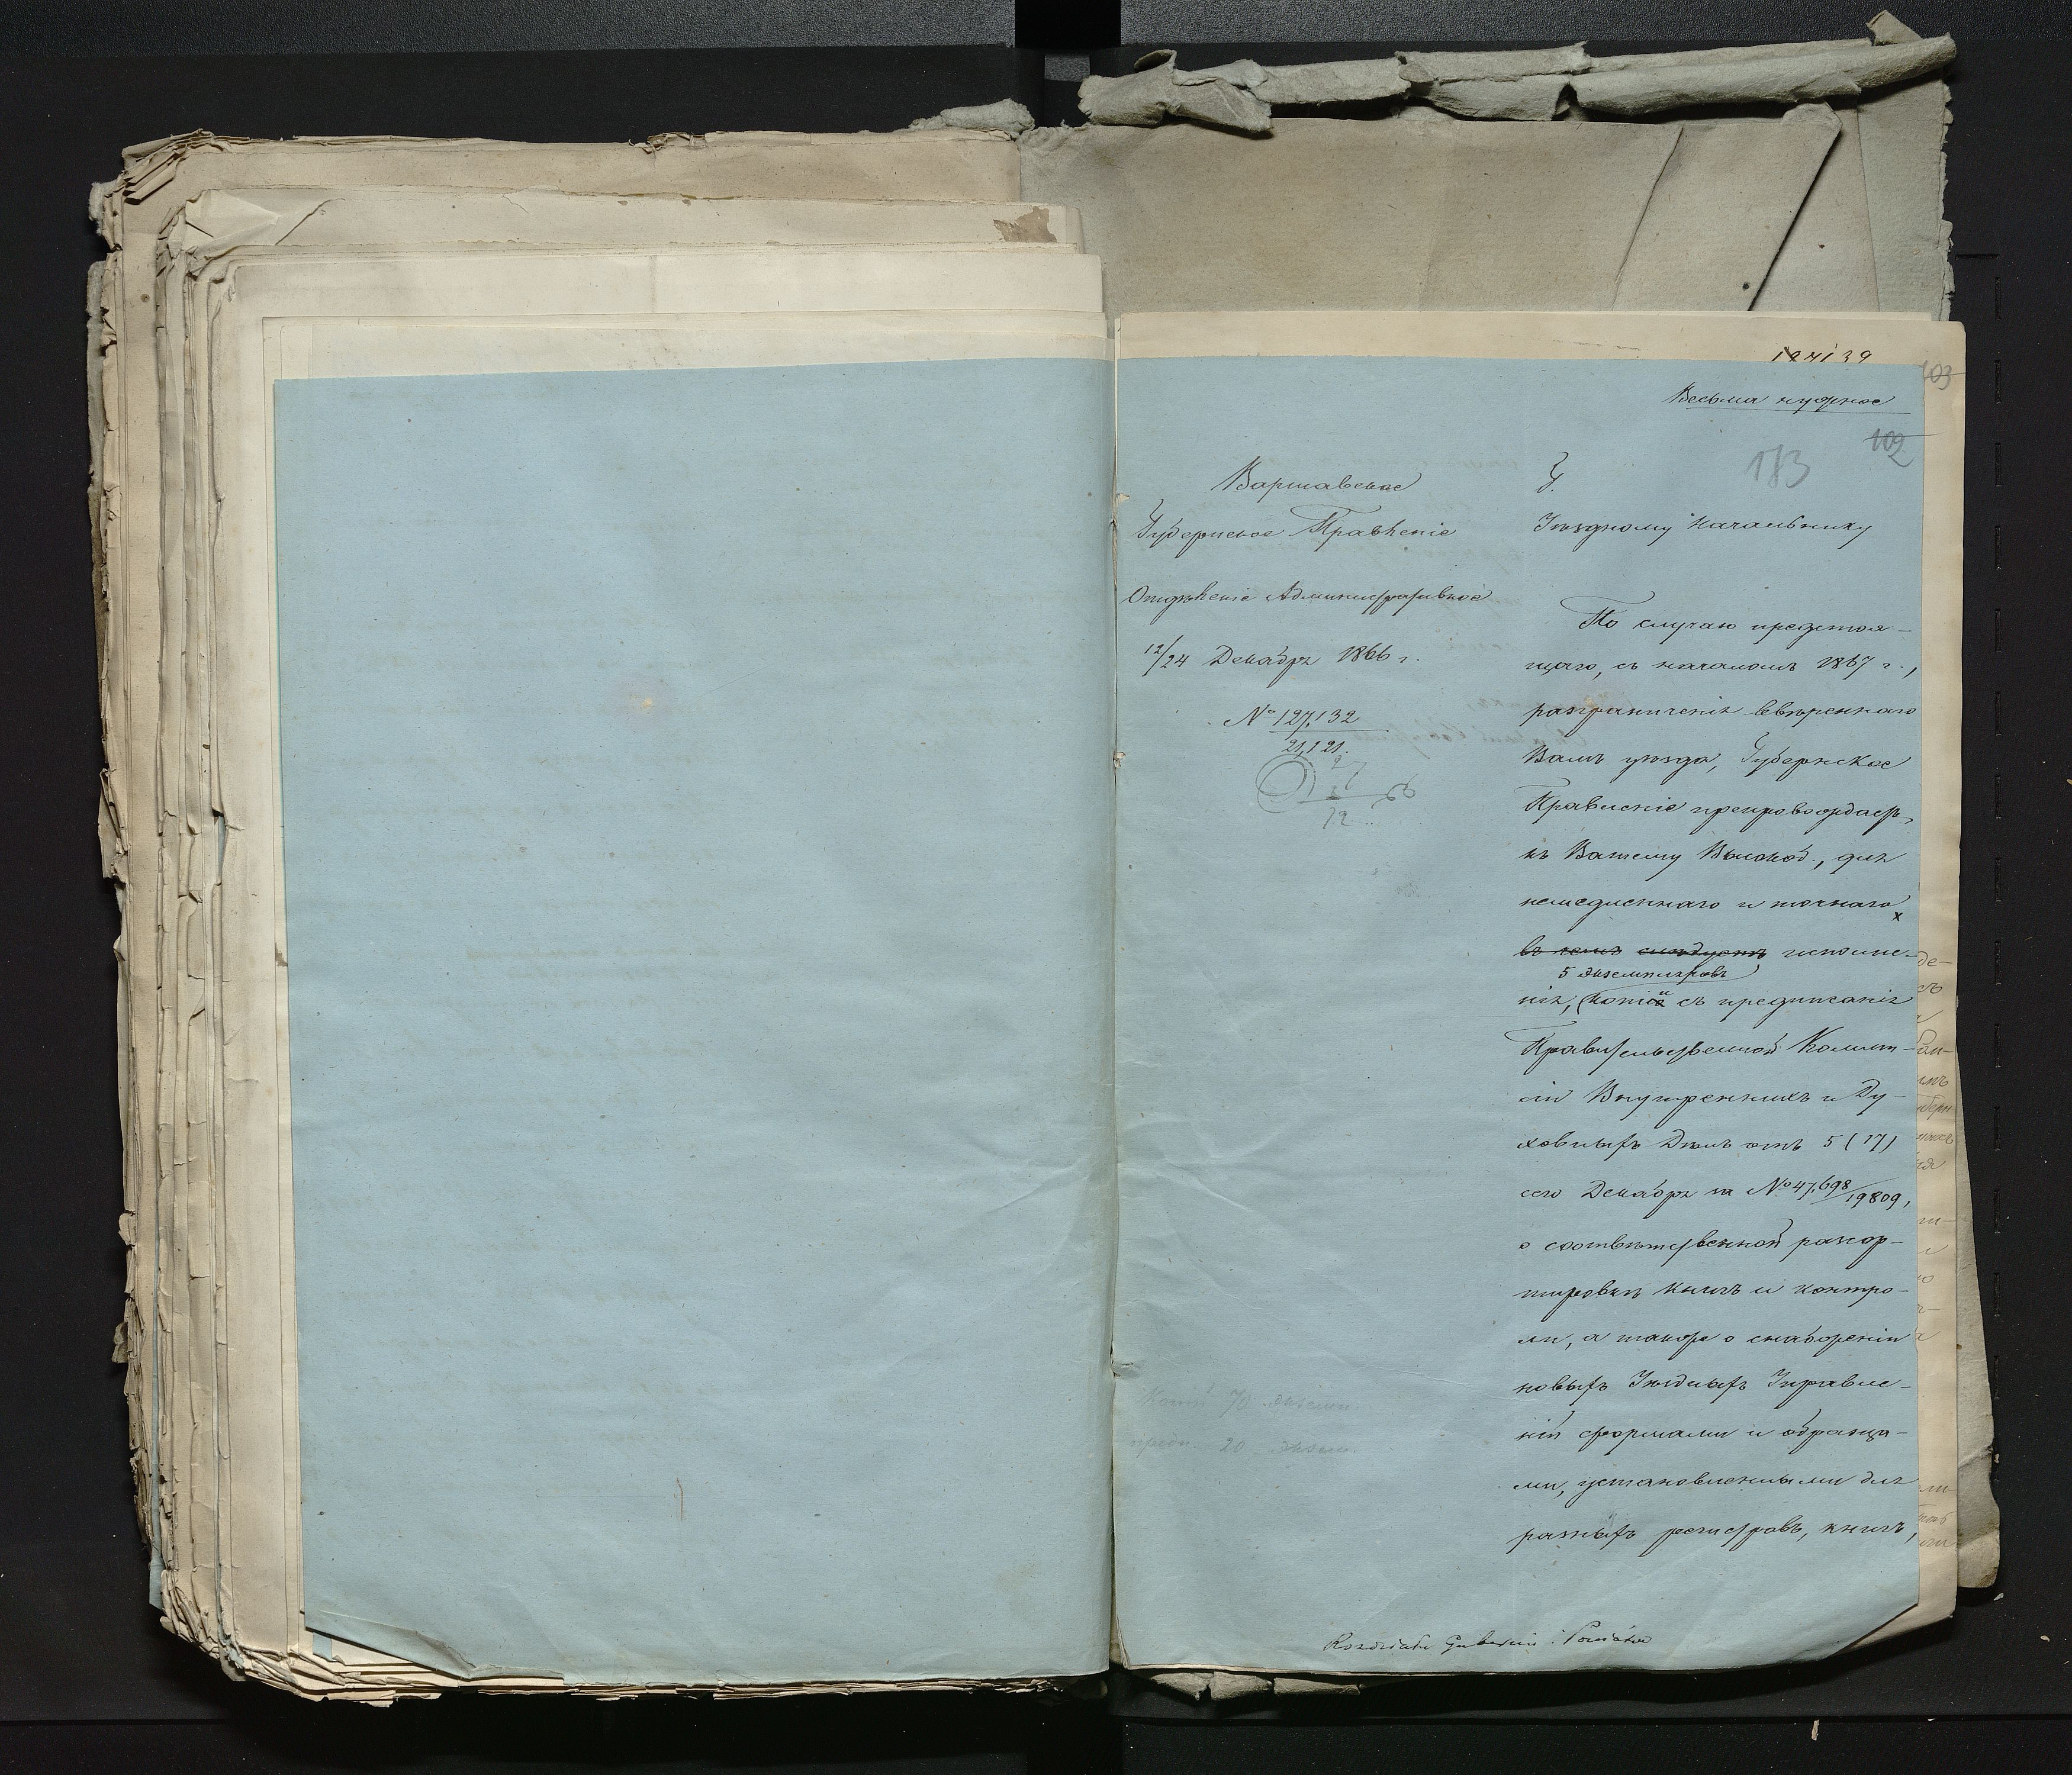 127139
103
Весьма нужное
102
183
Варшавское
Губернское Правленіе
Отдѣленіе Административное
12/24 Декабря 1866 г.
№ 127,132
21,121.
Г.
Уѣздному Начальнику
По случаю предстоя-
щаго, съ началомъ 1867 г.,
разграниченія ввѣреннаго
Вамъ уѣзда, Губернское
Правленіе препровождаетъ
къ Вашему Высокоб., для
немедленнаго и точнаго
въ чемъ слѣдуетъ исполне-
5 экземпляровъ
нія, копій съ предписанія
Правительственной Коммис-
сіи Внутреннихъ и Ду-
ховныхъ Дѣлъ отъ 5 (17)
сего Декабря за № 47,698/19809,
о соотвѣтственной разсор-
тировкѣ книгъ и контро-
ли, а также о снабженіи
новыхъ Уѣздныхъ Управле-
ній формами и образца-
ми, установленными для
разныхъ регистровъ, книгъ,
Копій 70 экземп.
предп. 20 экземп.
Rozdziału Gubernii i Powiatów